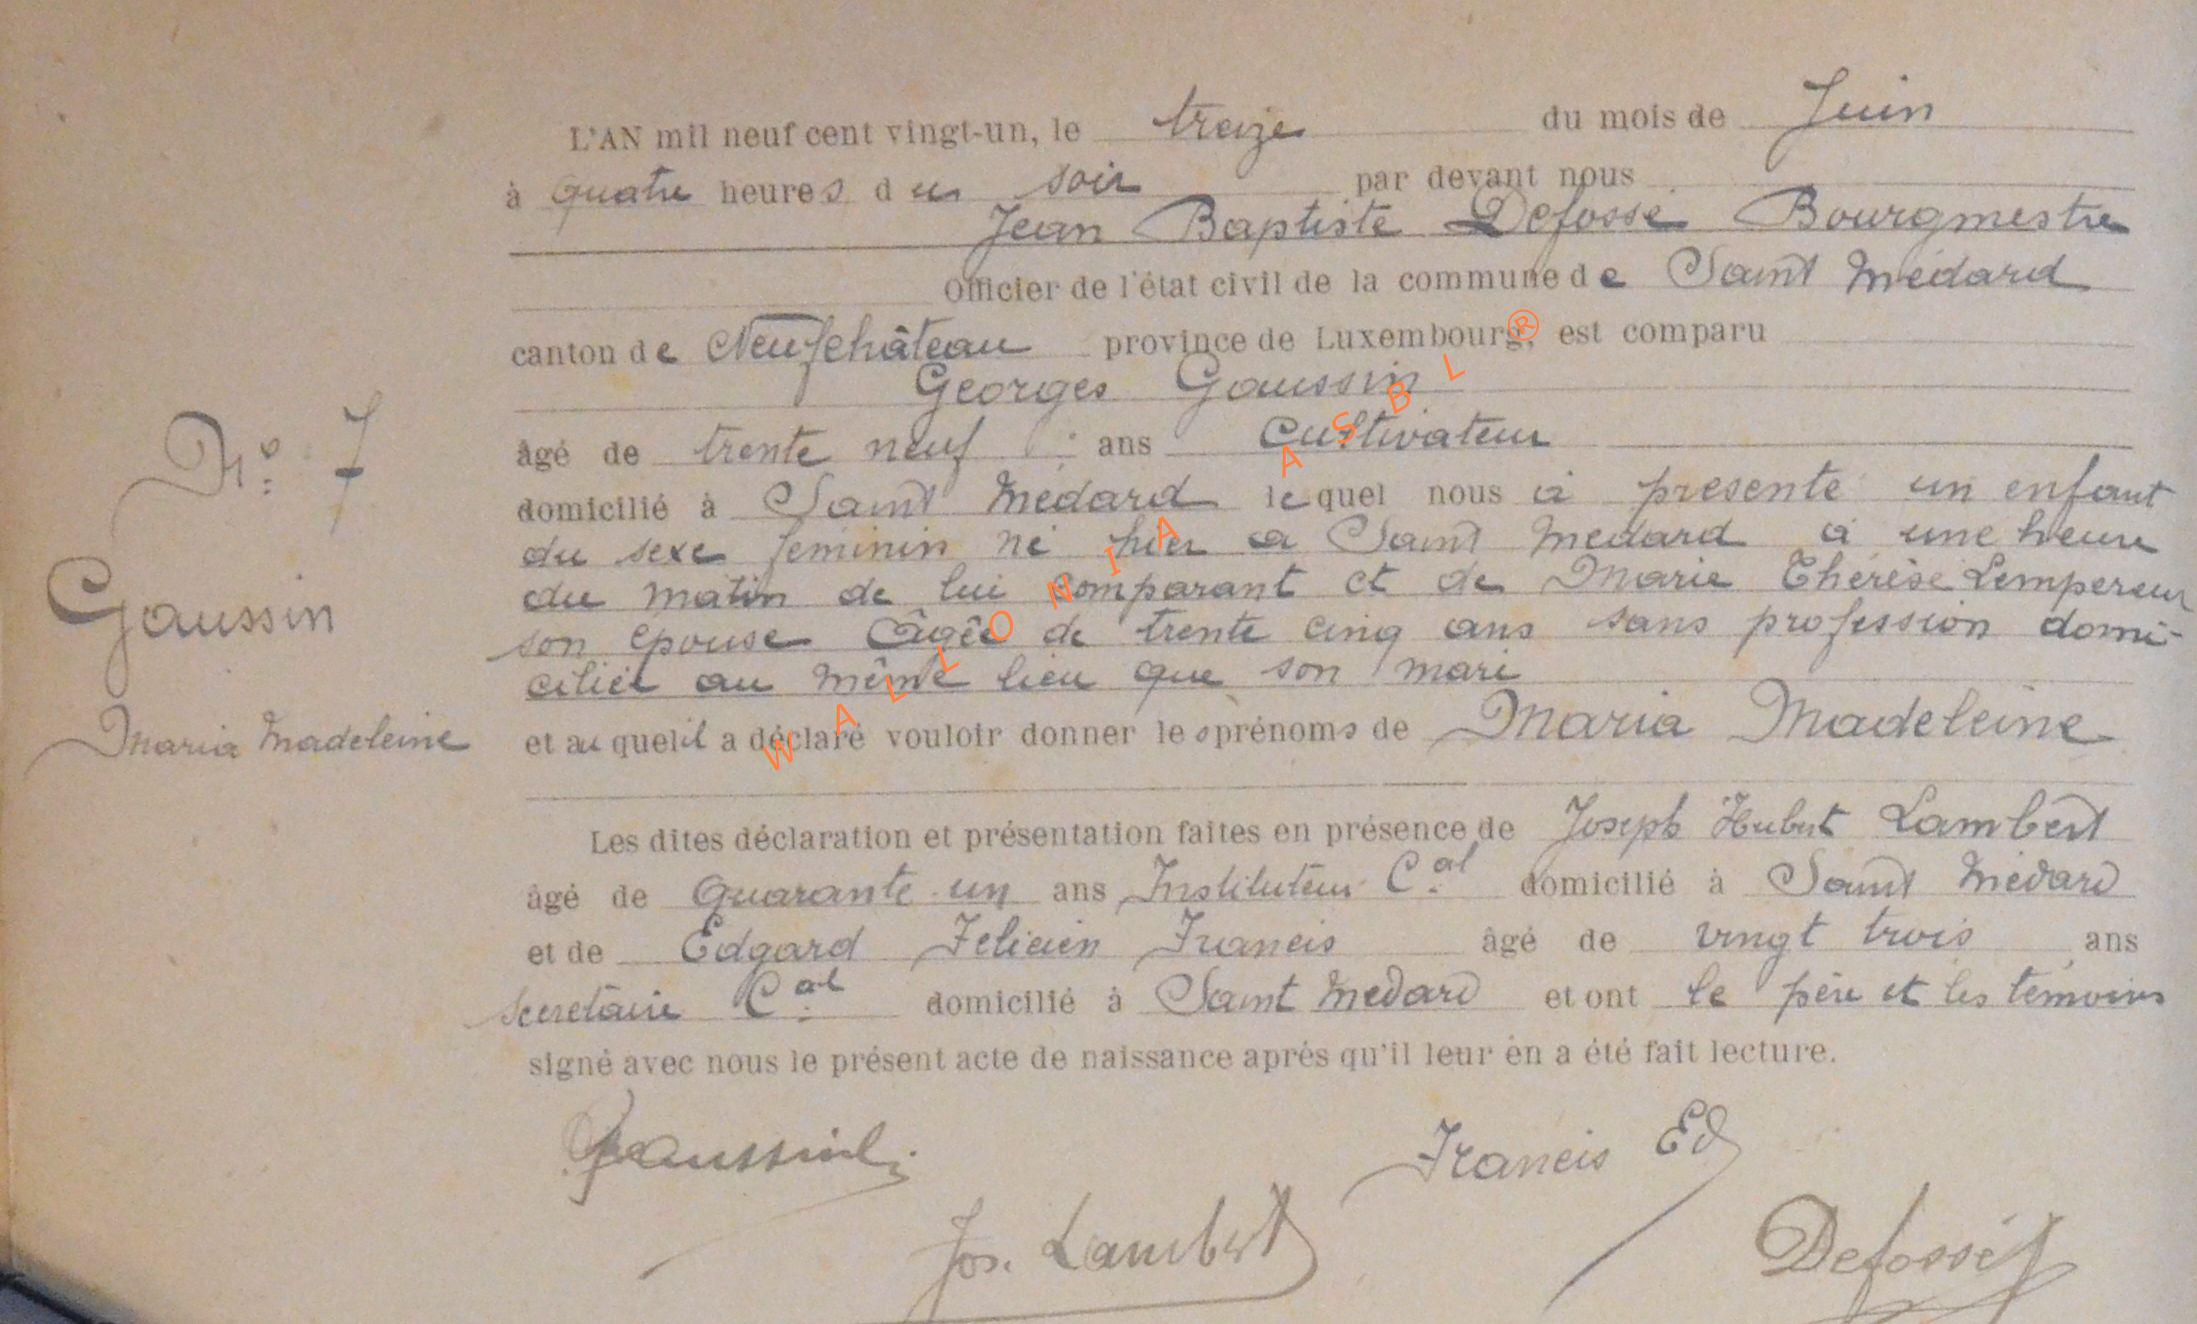 L'AN mil neuf cent vingt-un, le treize du mois de Juin
à quatre heures du soir par devant nous
Jean Baptiste Defossé Bourgmestre
Officier de l'état civil de la commune de Saint Médard
canton de Neufchâteau province de Luxembourg, est comparu
Georges Goussin
âgé de trente neuf ans cultivateur
domicilié à Saint Médard lequel nous à présenté un enfant
du sexe feminin né hier a Saint Médard à une heure
du matin de lui comparant et de Marie Thérèse Lempereur
son épouse âgée de trente cinq ans sans profession domi-
ciliée au même lieu que son mari
et auquel il a déclaré vouloir donner les prénoms de Maria Madeleine
Les dites déclaration et présentation faites en présence de Joseph Hubert Lambert
âgé de quarante un ans Instituteur Cal domicilié à Saint Médard
et de Edgard Félicien Francis âgé de vingt trois ans
secrétaire Cal domicilié à Saint Médard et ont le père et les témoins
signé avec nous le présent acte de naissance après qu'il leur en a été fait lecture.
No 7
Gaussin
Maria Madeleine
Francis Ed
Jos. Lambert
Defossé
WALLONIA ASBL ®